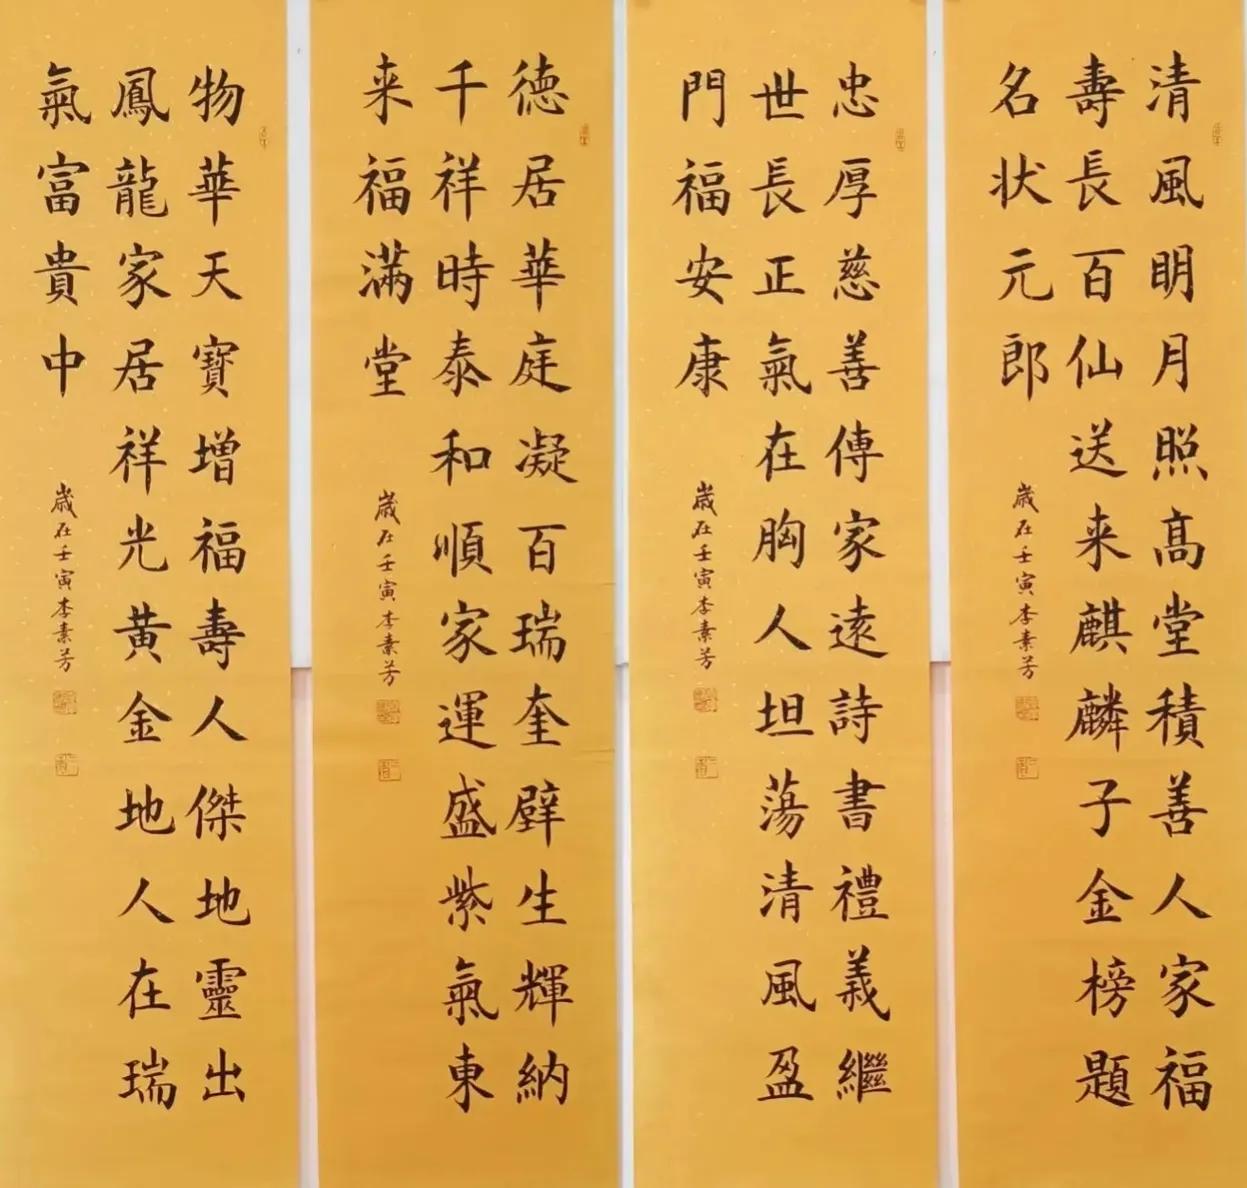 清風明月照高堂積善人家福
壽長百仙送来麒麟子金榜題
名状元郎
歲在壬寅李素芳
忠厚慈善傳家遠詩書禮義繼
世長正氣在胸人坦蕩清風盈
門福安康
歲在壬寅李素芳
德居華庭凝百瑞奎壁生輝納
千祥時泰和順家運盛紫氣東
来福滿堂
歲在壬寅李素芳
物華天寶增福壽人傑地靈出
鳳龍家居祥光黄金地人在瑞
氣富貴中
歲在壬寅李素芳